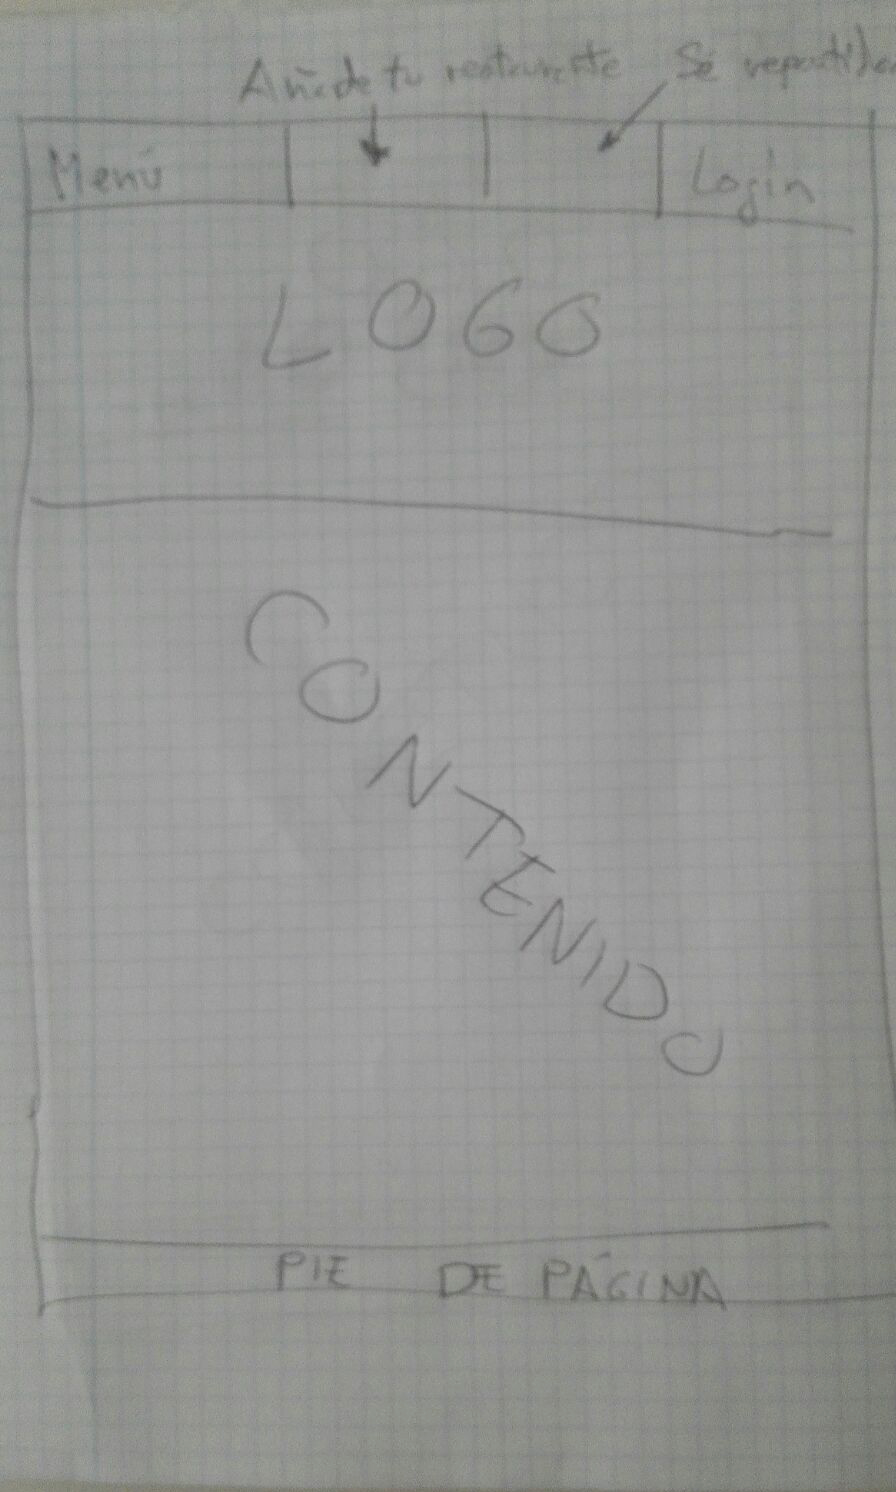 Añade tu restaurante Sé repartidor
Menú Login
LOGO
CONTENIDO
PIE DE PÁGINA